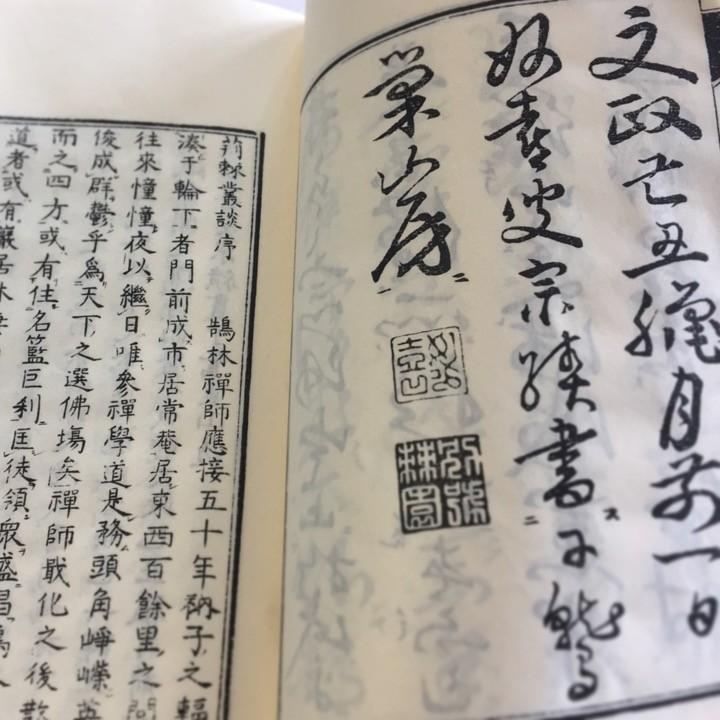 文政己丑臘月前一日
妙喜叟宗績書于鷲
巣山房
荊棘叢談序 鵠林禪師應接五十年衲子之輻
湊于輪下者門前成市居常菴居東西百餘里之間
往來憧憧夜以繼日唯參禪學道是務頭角崢嶸英
俊成群鬱乎爲天下之選佛塲矣禪師戢化之後散
而之四方或有住名籃巨刹匡徒領衆盛昌
道者或有巖居林